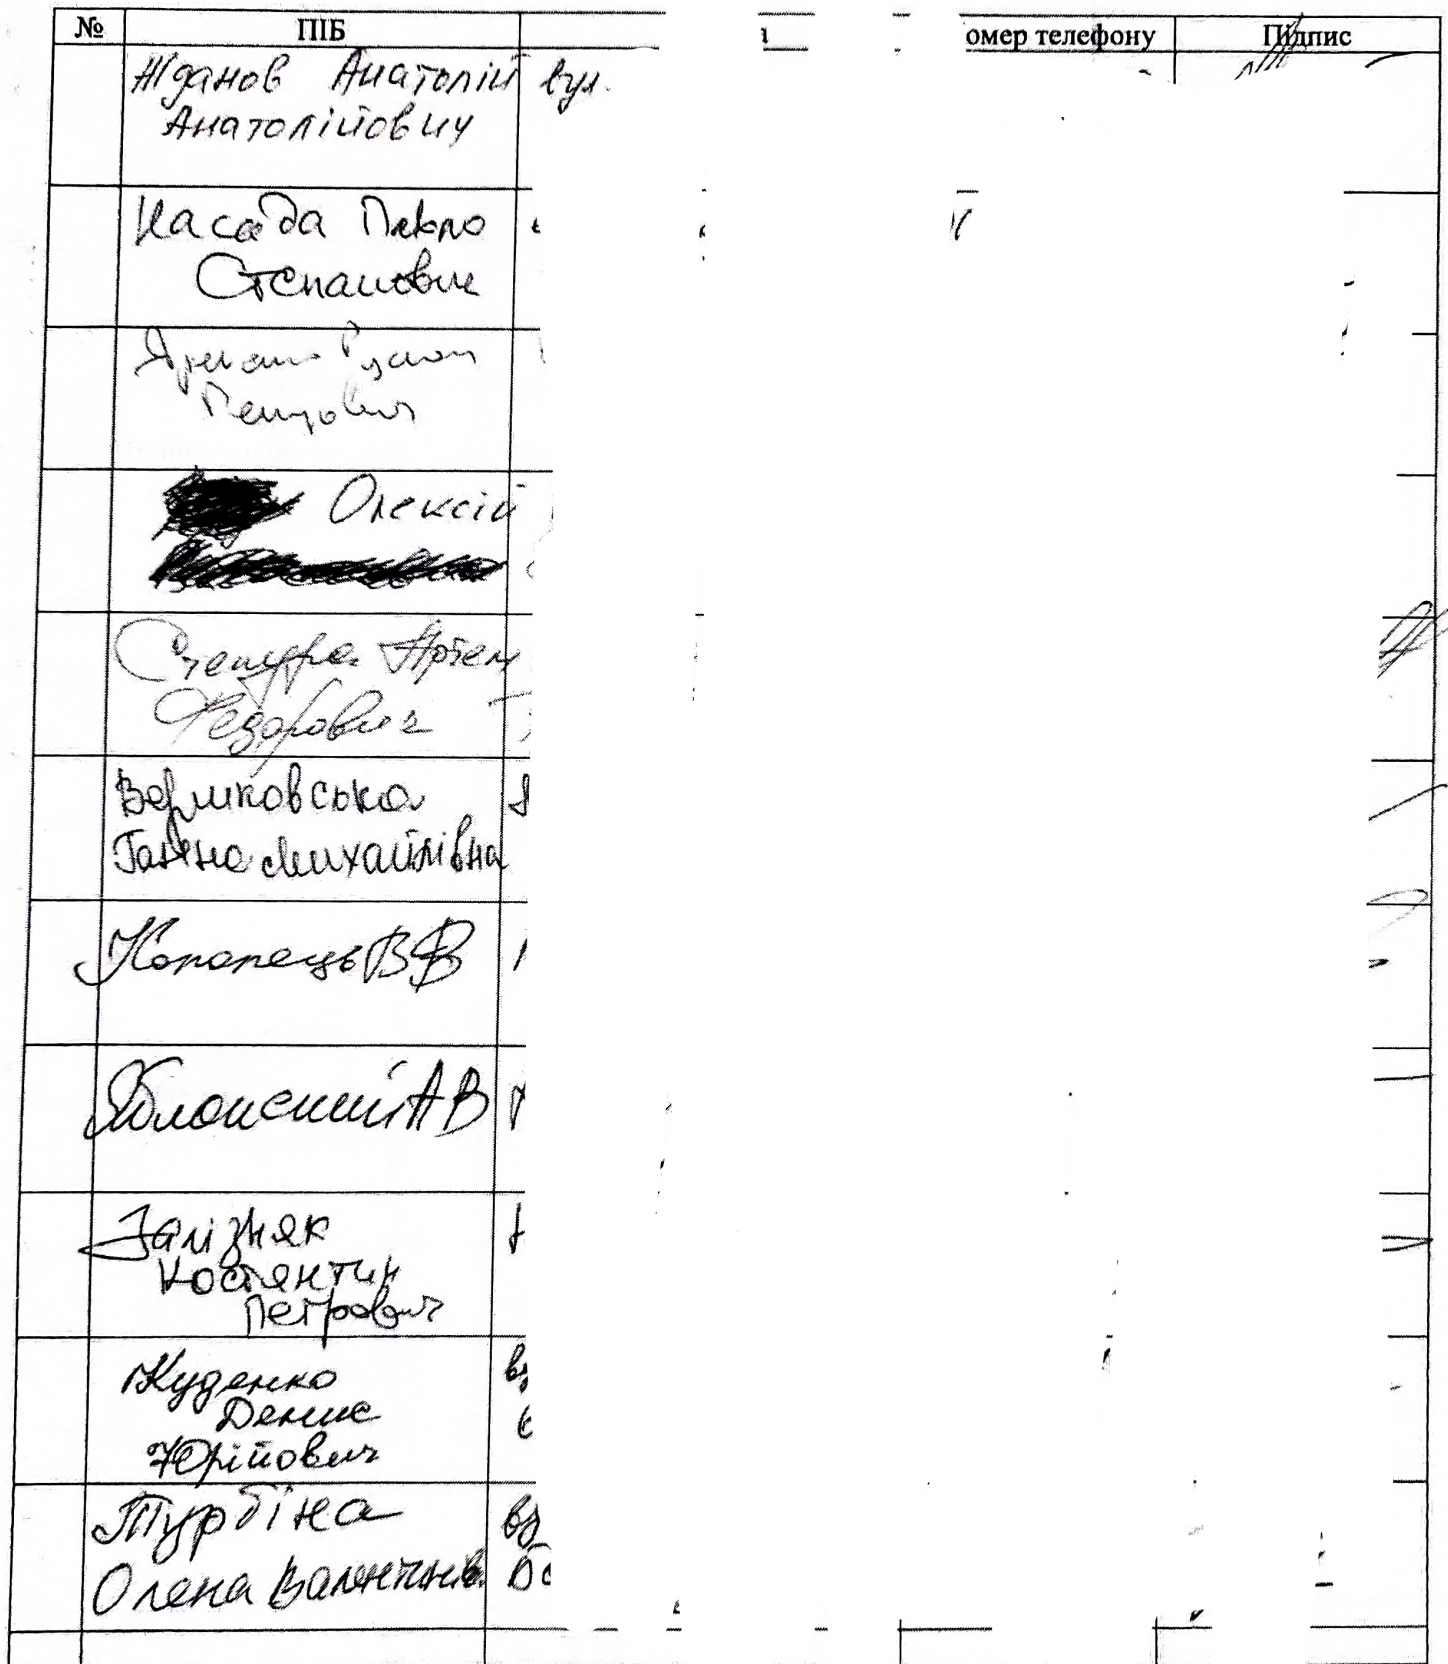 № ПІБ омер телефону Підпис
Жданов Анатолій вул.
Анатолійович
Касада Павло
Степанович
Руслан
Петрович
Олексій
Степура Артем
Федорович
Ганна Михайлівна
Коропець В В
Яблонський А В
Залізняк
Костянтин
Петрович
Жуденко
Денис
Юрійович
Турбіна
Олена Валентинів.